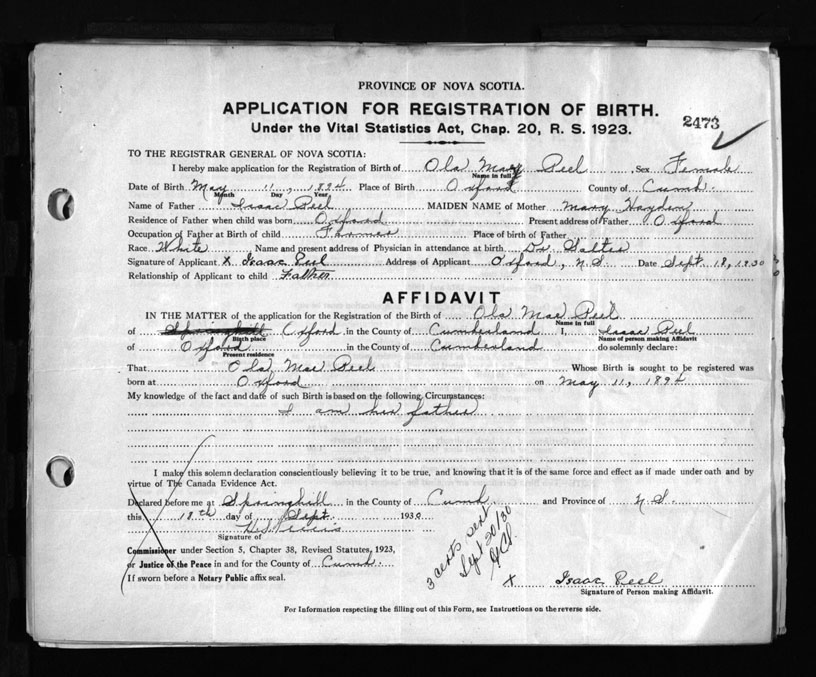 PROVINCE OF NOVA SCOTIA.
APPLICATION FOR REGISTRATION OF BIRTH.
2473
Under the Vital Statistics Act, Chap. 20, R. S. 1923.
TO THE REGISTRAR GENERAL OF NOVA SCOTIA:
I hereby make application for the Registration of Birth of Ola May Peel Sex Female
Name in full
Date of Birth May 11, 1894 Place of Birth Oxford County of Cumb.
Month Day Year
Name of Father Isaac Peel MAIDEN NAME of Mother Mary Hayden
Residence of Father when child was born Oxford Present address of Father Oxford
Occupation of Father at Birth of child Farmer Place of birth of Father
Race White Name and present address of Physician in attendance at birth Dr
Signature of Applicant X Isaac Peel Address of Applicant Oxford, N.S. Date Sept. 18, 1930
Relationship of Applicant to child Father
AFFIDAVIT
IN THE MATTER of the application for the Registration of the Birth of Ola Mae Peel
Name in full
of Springhill Oxford in the County of Cumberland I, Isaac Peel
Birth place Name of person making Affidavit
of Oxford in the County of Cumberland do solemnly declare:
Present residence
That Ola Mae Peel Whose Birth is sought to be registered was
born at Oxford on May 11, 1894
My knowledge of the fact and date of such Birth is based on the following Circumstances:
I am her father
I make this solemn declaration conscientiously believing it to be true, and knowing that it is of the same force and effect as if made under oath and by
virtue of The Canada Evidence Act.
Declared before me at Springhill in the County of Cumb and Province of N.S.
this 18th day of Sept 1930
Signature of
Commissioner under Section 5, Chapter 38, Revised Statutes, 1923,
or Justice of the Peace in and for the County of Cumb.
If sworn before a Notary Public affix seal.
3 cents sent
Sept 20/30
X Isaac Peel
Signature of Person making Affidavit.
For Information respecting the filling out of this Form, see Instructions on the reverse side.